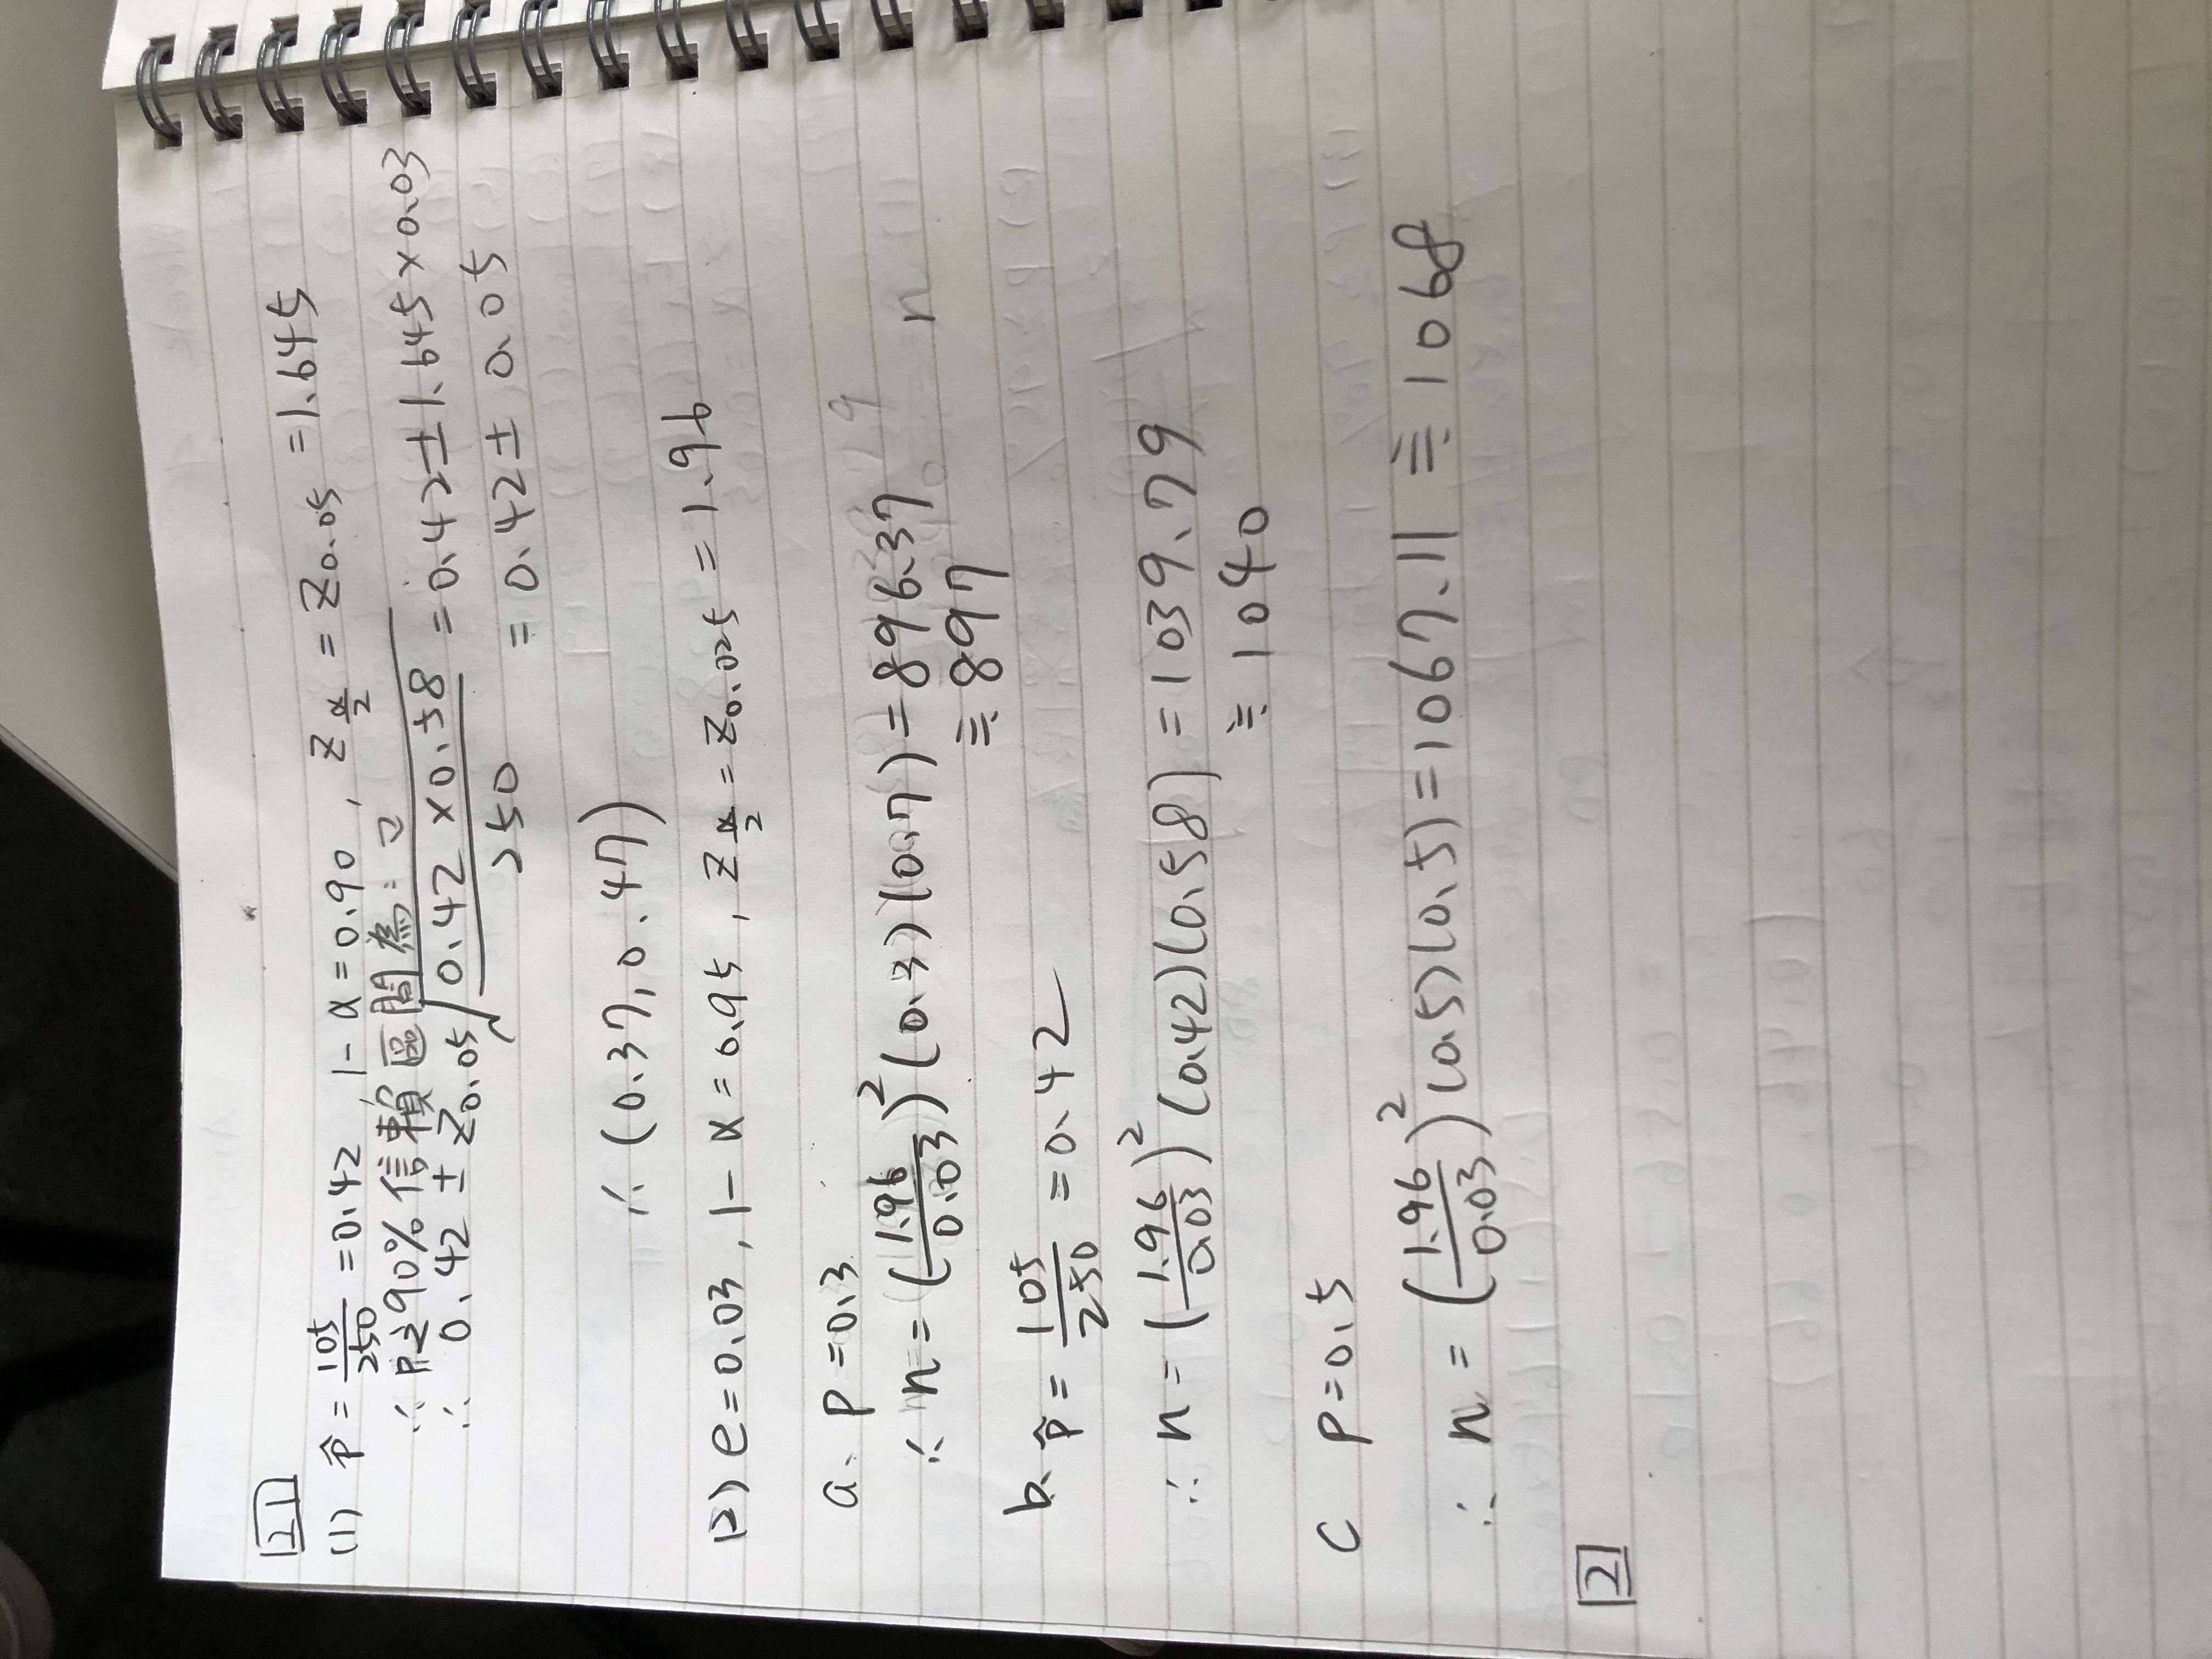 21
(1) p̂ = 105/250 = 0.42 , 1-α = 0.90 , Z α/2 = Z0.05 = 1.645
∴ p之90%信賴區間為:
∴ 0.42 ± Z0.05 √(0.42 × 0.58 / 250) = 0.42 ± 1.645 × 0.03
= 0.42 ± 0.05
∴ (0.37, 0.47)
(2) e = 0.03 , 1-α = 0.95 , Z α/2 = Z0.025 = 1.96
a. p = 0.3
∴ n = (1.96/0.03)² (0.3)(0.7) = 896.37
≒ 897
b. p̂ = 105/250 = 0.42
∴ n = (1.96/0.03)² (0.42)(0.58) = 1039.79
≒ 1040
c p = 0.5
∴ n = (1.96/0.03)² (0.5)(0.5) = 1067.11 ≒ 1068
2